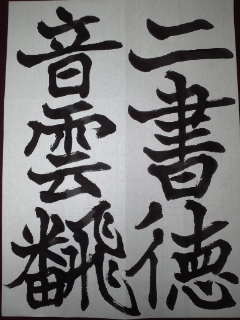 二書徳
音雲飜